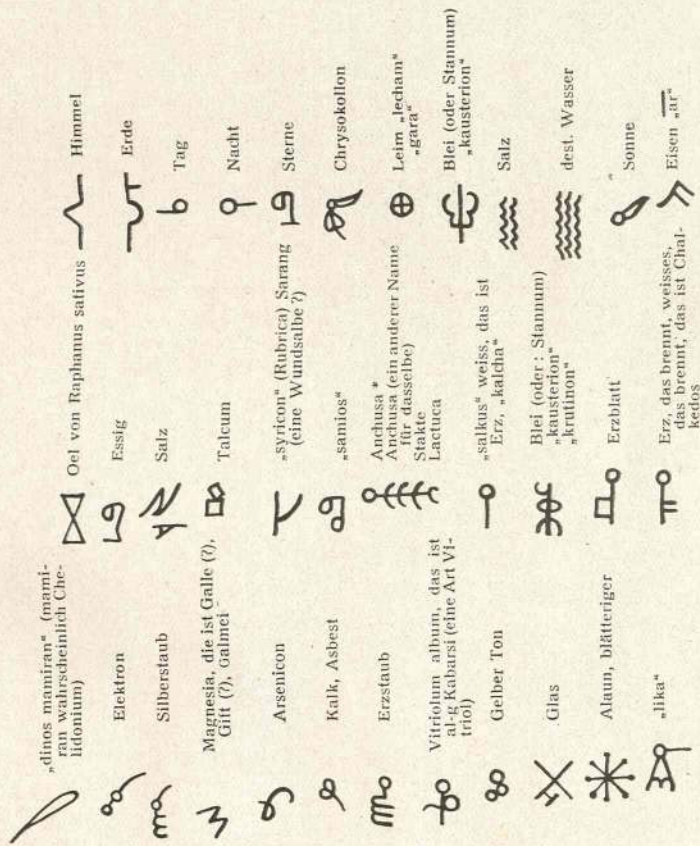 „dinos mamiran“ (mami-
ran wahrscheinlich Che-
lidonium)
Elektron
Silberstaub
Magnesia, die ist Galle (?),
Gift (?), Galmei
Arsenicon
Kalk, Asbest
Erzstaub
Vitriolum album, das ist
al-g Kabarsi (eine Art Vi-
triol)
Gelber Ton
Glas
Alaun, blätteriger
„lika“
Oel von Raphanus sativus
Essig
Salz
Talcum
„syricon“ (Rubrica) Sarang
(eine Wundsalbe ?)
„samios“
Anchusa *
Anchusa (ein anderer Name
für dasselbe)
Stakte
Lactuca
„salkus“ weiss, das ist
Erz, „kalcha“
Blei (oder : Stannum)
„kausterion“
„krutinon“
Erzblatt
Erz, das brennt, weisses,
das brennt, das ist Chal-
kedos
Himmel
Erde
Tag
Nacht
Sterne
Chrysokollon
Leim „lecham“
„gara“
Blei (oder Stannum)
„kausterion“
Salz
dest. Wasser
Sonne
Eisen „ar“